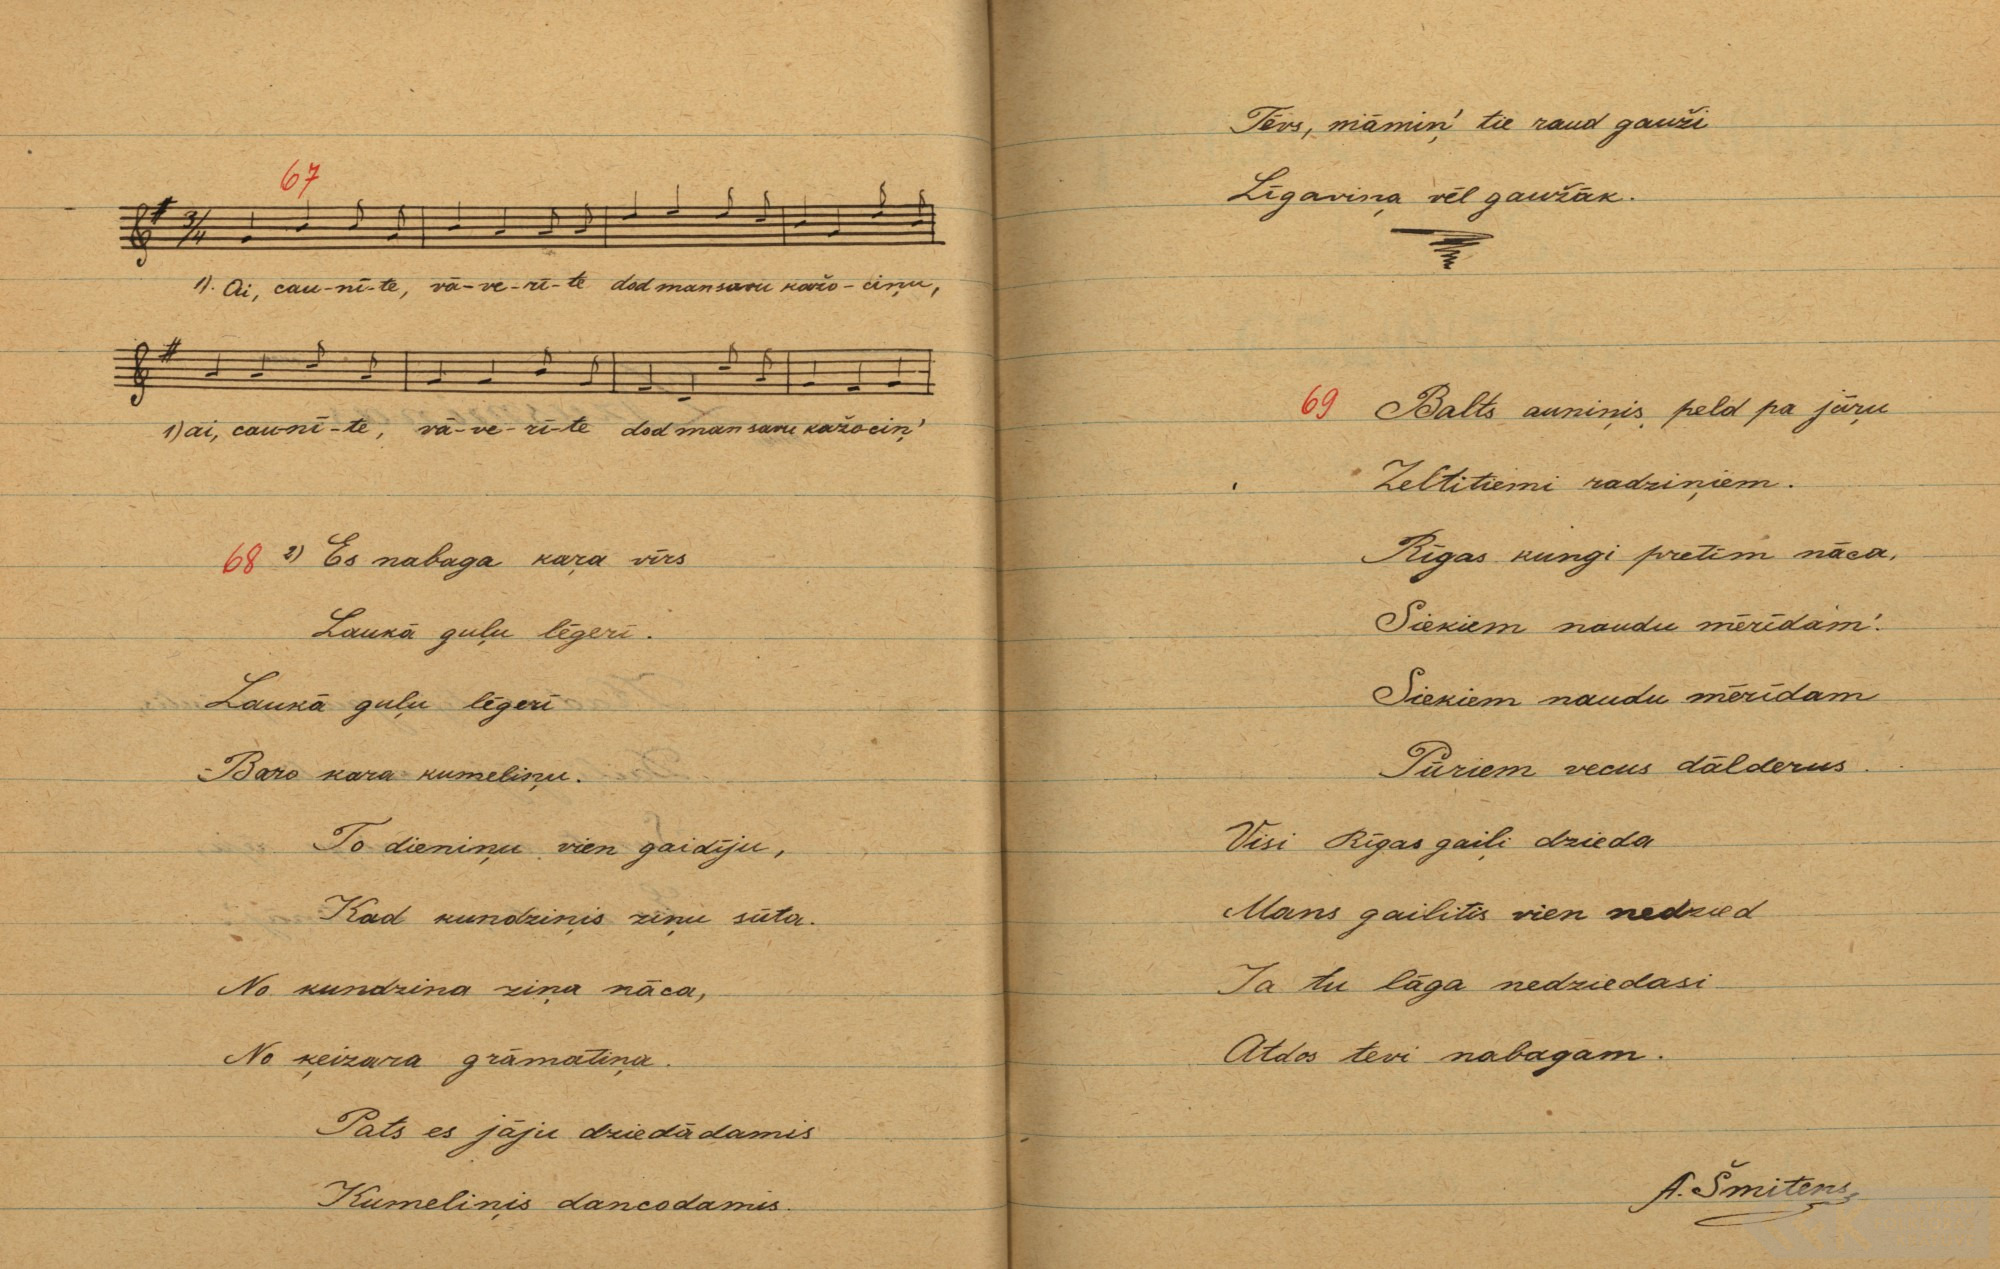 67
3/4
1). Ai, cau-nī-te, vā-ve-rī-te dod man savu kažo-ciņu,
1) ai, cau-nī-te, vā-ve-rī-te dod man savu kažociņ'
68 2) Es nabaga kaŗa vīrs
Laukā guļu lēģerī.
Laukā guļu lēģerī
Baro kara kumeliņu.
To dieniņu vien gaidīju,
Kad kundziņis ziņu sūta.
No kundzina ziņa nāca,
No ķeizara grāmatiņa.
Pats es jāju dziedādamis
Kumeliņis dancodamis.
Tēvs, māmiņ' tie raud gauži
Līgaviņa vēl gaužāk.
69 Balts auniņis peld pa jūŗu
Zeltitiemi radziņiem.
Rīgas kungi pretīm nāca,
Siekiem naudu mērīdam'.
Siekiem naudu mērīdam
Pūriem vecus dālderus.
Visi Rīgas gaiļi dzieda
Mans gailitis vien nedzied
Ja tu lāga nedziedasi
Atdos tevi nabagam.
A. Šmitens